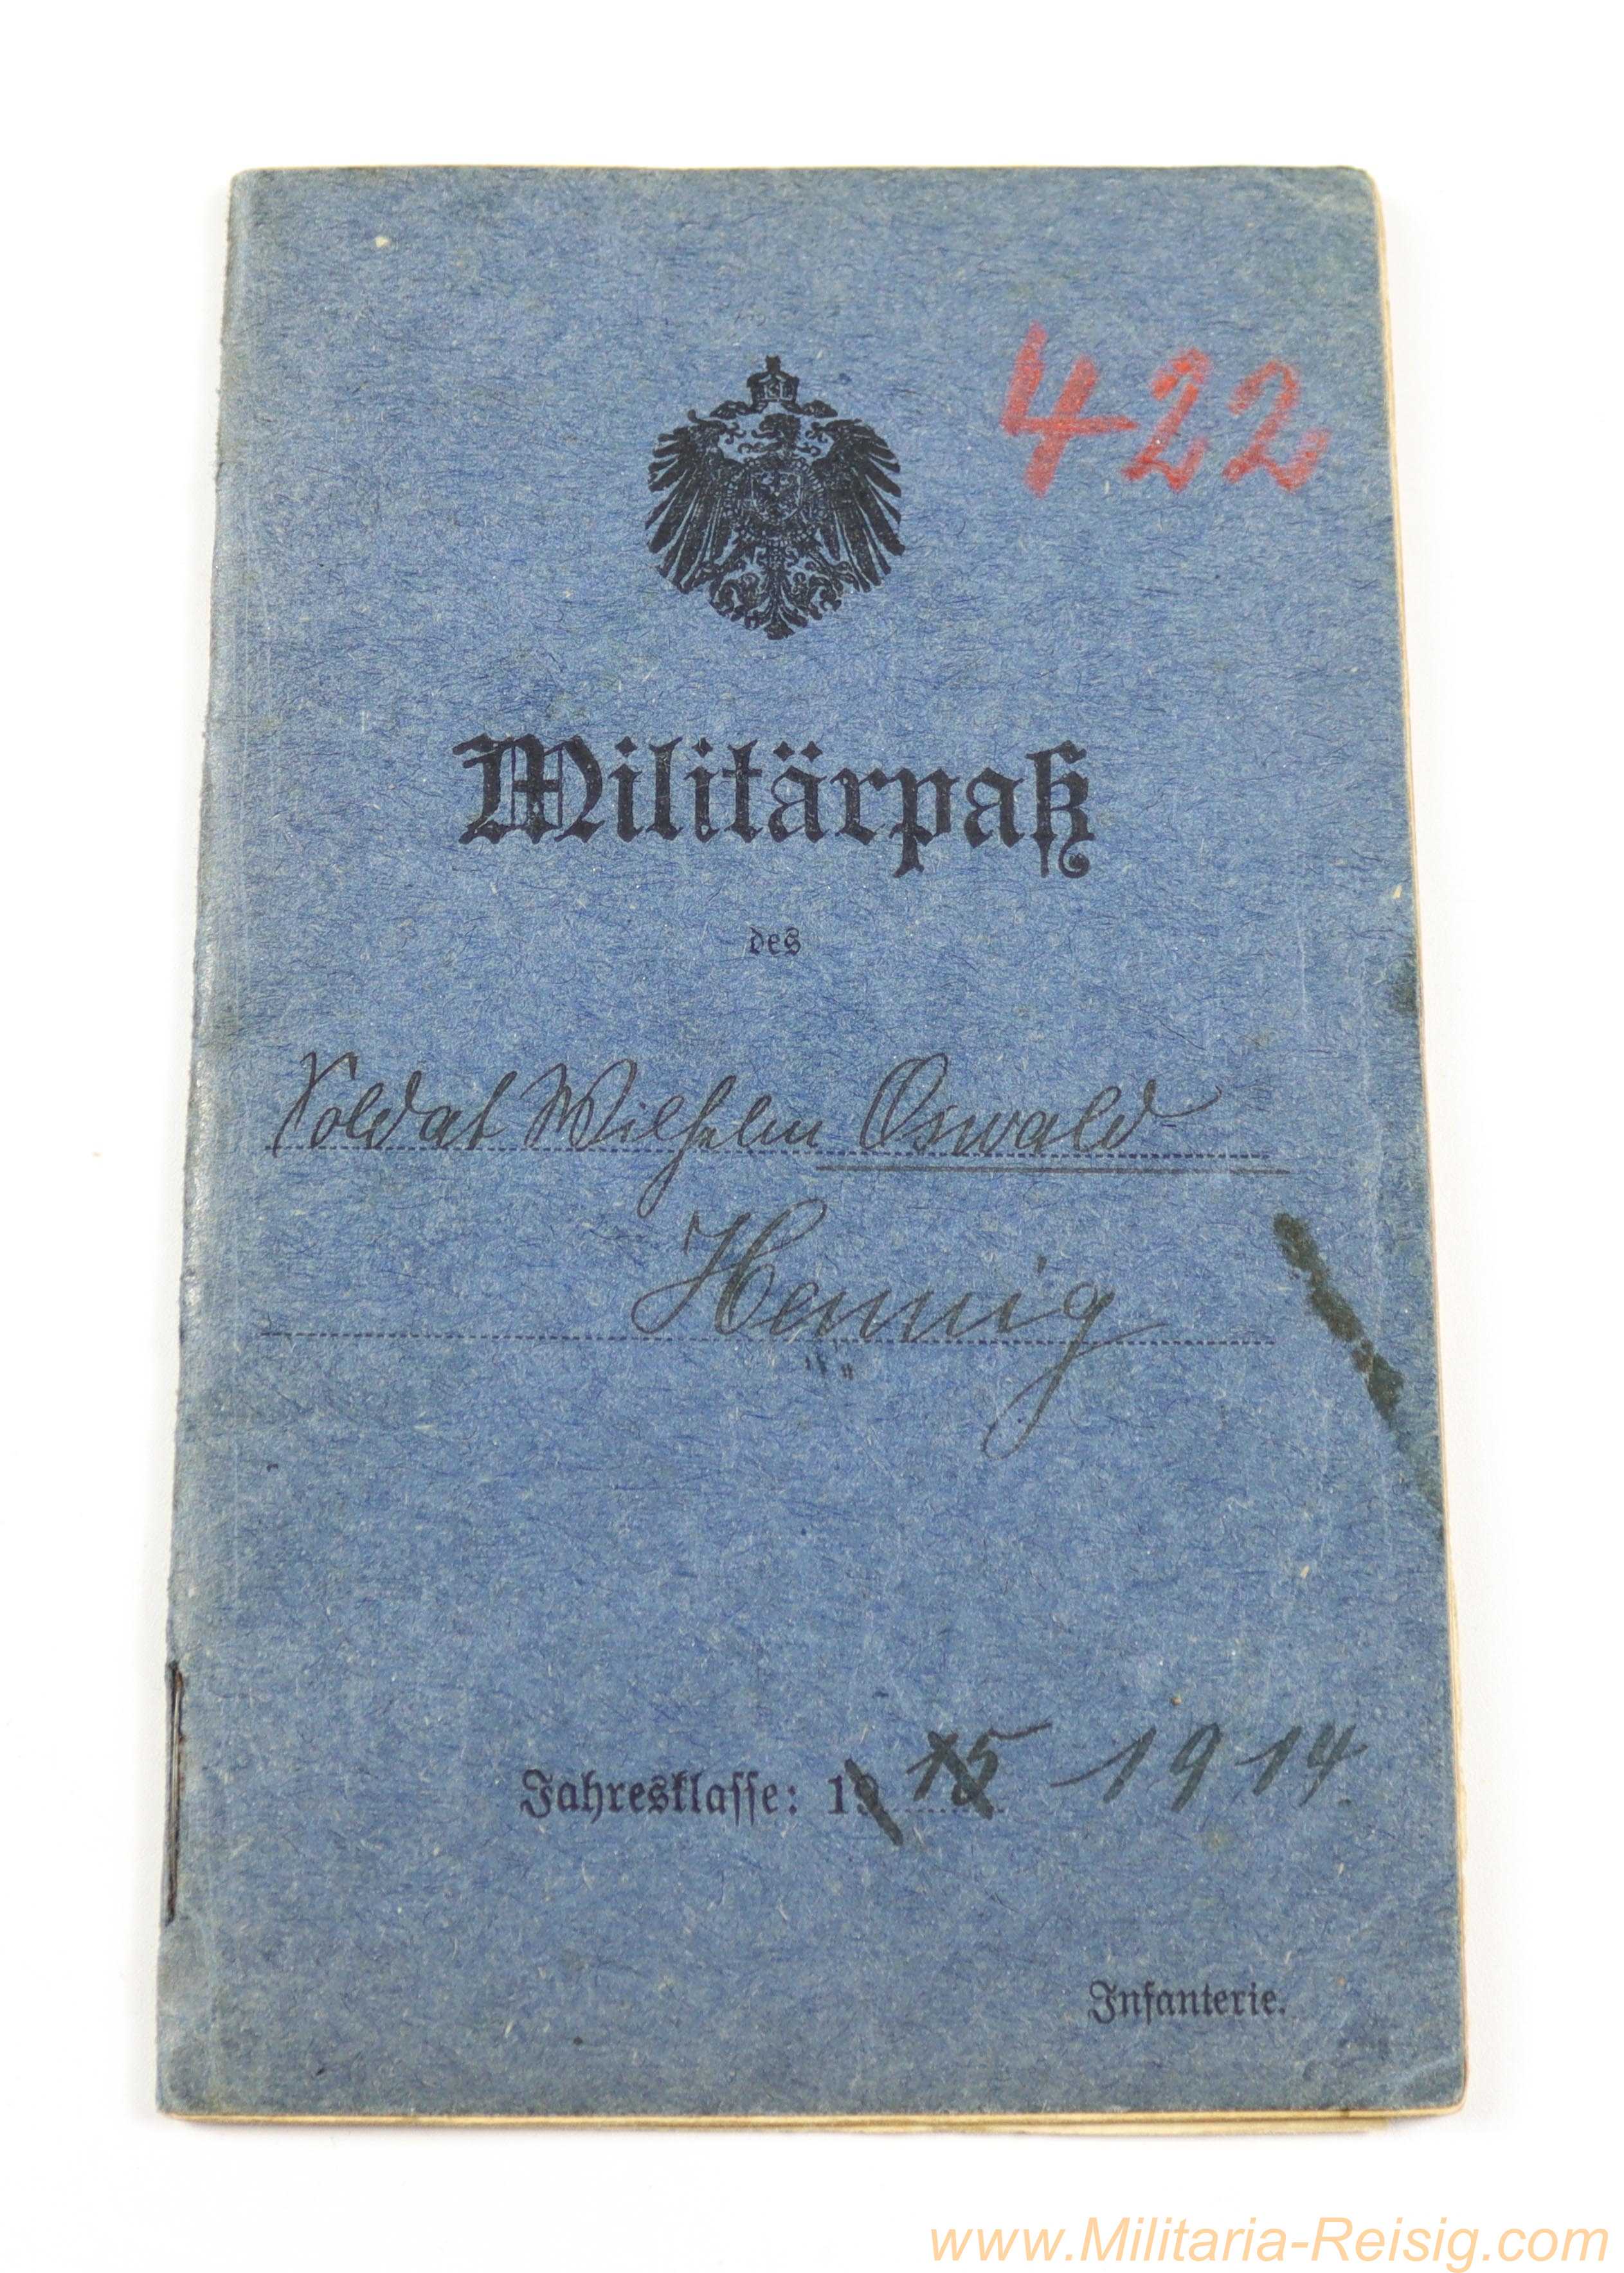 422
Militärpaß
des
Soldat Wilhelm Oswald
Hennig
Jahresklasse: 19 15 1914
Infanterie.
www.Militaria-Reisig.com